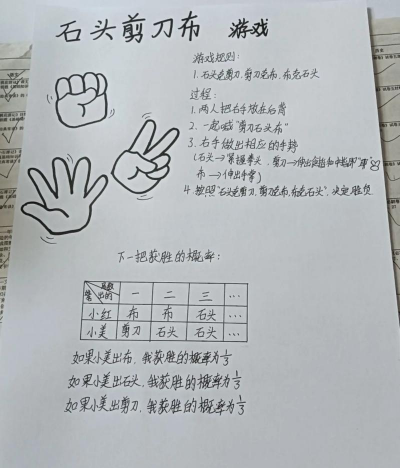 石头剪刀布 游戏
游戏规则:
1.石头克剪刀,剪刀克布,布克石头
过程:
1.两人把右手放在后背
2.一起喊"剪刀石头布"
3.右手做出相应的手势
(石头→紧握拳头,剪刀→伸出食指和中指
布→伸出手掌)
4.按照"石头克剪刀,剪刀克布,布克石头",决定胜负
下一把获胜的概率:
局数 一 二 三 …
出的
小红 布 布 石头 …
小美 剪刀 石头 石头 …
如果小美出布,我获胜的概率为1/3
如果小美出石头,我获胜的概率为1/3
如果小美出剪刀,我获胜的概率为1/3